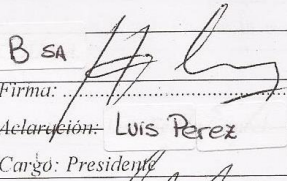 B SA
Firma: ..............................
Aclaración: Luis Perez
Cargo: Presidente